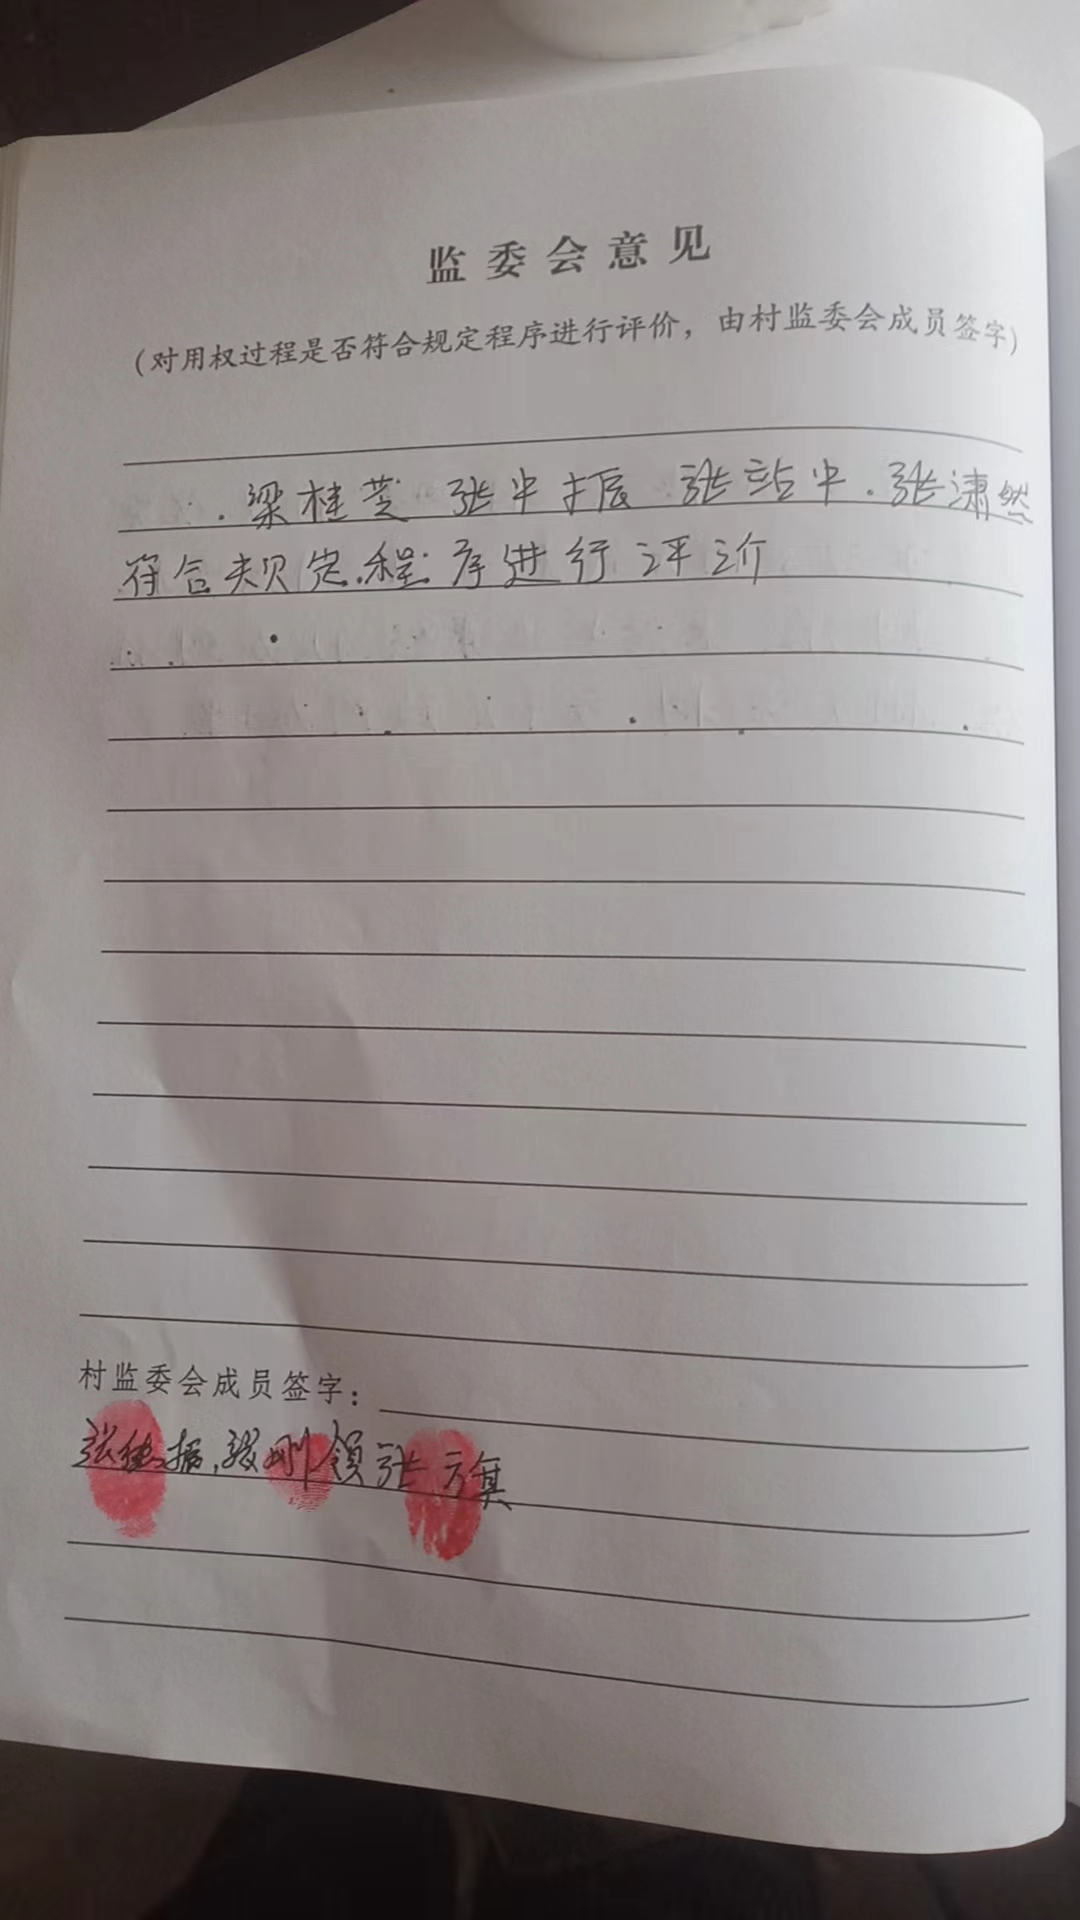 监委会意见
（对用权过程是否符合规定程序进行评价，由村监委会成员签字）
梁桂芝 张中振 张站中．张潇然
符合规定程序进行评价
村监委会成员签字：
张 振，张刚领 张方其